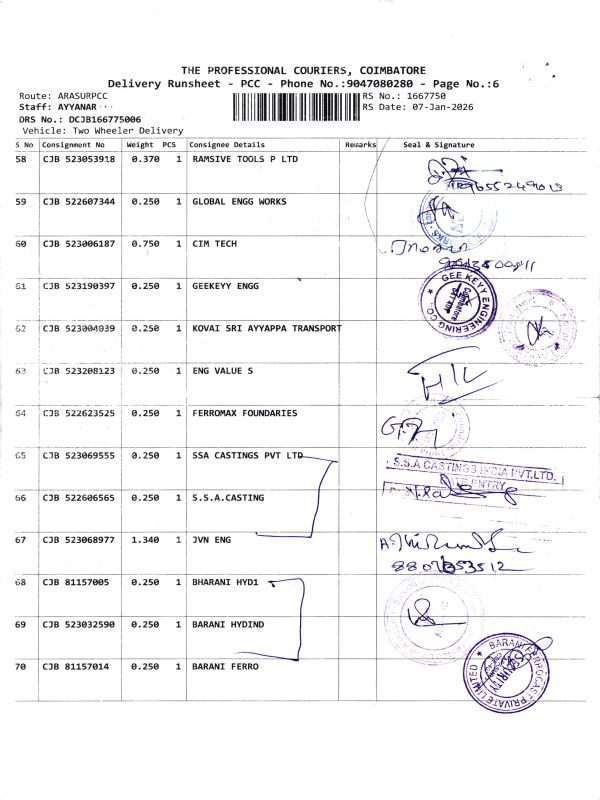 THE PROFESSIONAL COURIERS, COIMBATORE
Delivery Runsheet - PCC - Phone No.:9047080280 - Page No.:6
Route: ARASURPCC RS No.: 1667750
Staff: AYYANAR RS Date: 07-Jan-2026
DRS No.: DCJB166775006
Vehicle: Two Wheeler Delivery
S No Consignment No Weight PCS Consignee Details Remarks Seal & Signature
58 CJB 523053918 0.370 1 RAMSIVE TOOLS P LTD
59 CJB 522607344 0.250 1 GLOBAL ENGG WORKS
60 CJB 523006187 0.750 1 CIM TECH
61 CJB 523190397 0.250 1 GEEKEYY ENGG
GEE KEYY ENGINEERING CO
62 CJB 523004039 0.250 1 KOVAI SRI AYYAPPA TRANSPORT
63 CJB 523208123 0.250 1 ENG VALUE S
64 CJB 522623525 0.250 1 FERROMAX FOUNDARIES
65 CJB 523069555 0.250 1 SSA CASTINGS PVT LTD
S.S.A CASTINGS INDIA PVT.LTD.
ENTRY
66 CJB 522606565 0.250 1 S.S.A.CASTING
67 CJB 523068977 1.340 1 JVN ENG
8807653512
68 CJB 81157005 0.250 1 BHARANI HYD1
69 CJB 523032590 0.250 1 BARANI HYDIND
70 CJB 81157014 0.250 1 BARANI FERRO
BARANI FERROCAST PRIVATE LIMITED
SECURITY